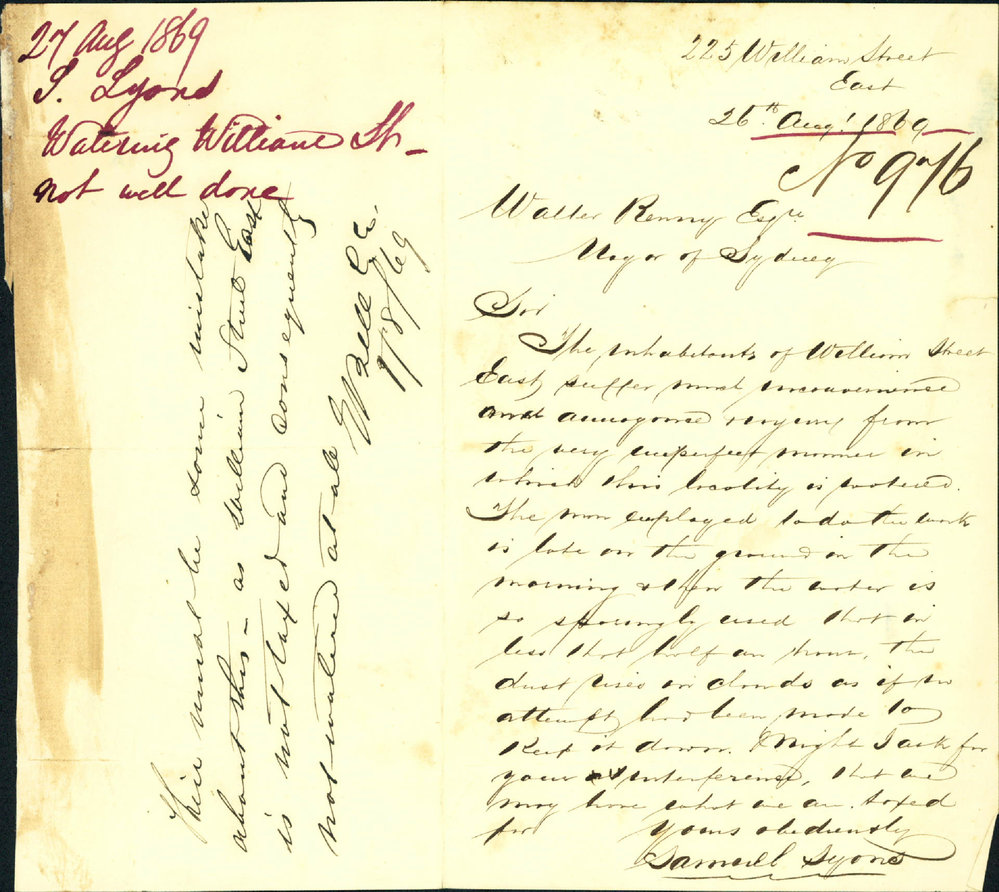 27 Aug 1869
S. Lyons
Watering William St -
not well done
Their must be some mistake
about this - as William Street East
is not taxed and consequently
not watered at all
/8/69
225 William Street
East
26th Augt 1869
No 976
Walter Renny Esqre
Mayor of Sydney
Sir
The inhabitants of William Street
East, suffer most inconvenience
and annoyance from
the very imperfect manner in
which this locality is watered.
The man employed to do the work
is late on the ground in the
morning & then the water is
so sparingly used that in
less that half an hour, the
dust rises in clouds as if no
attempt had been made to
keep it down. Might I ask for
your interference, that we
may have what we are taxed
for Yours obediently
Samuel Lyons